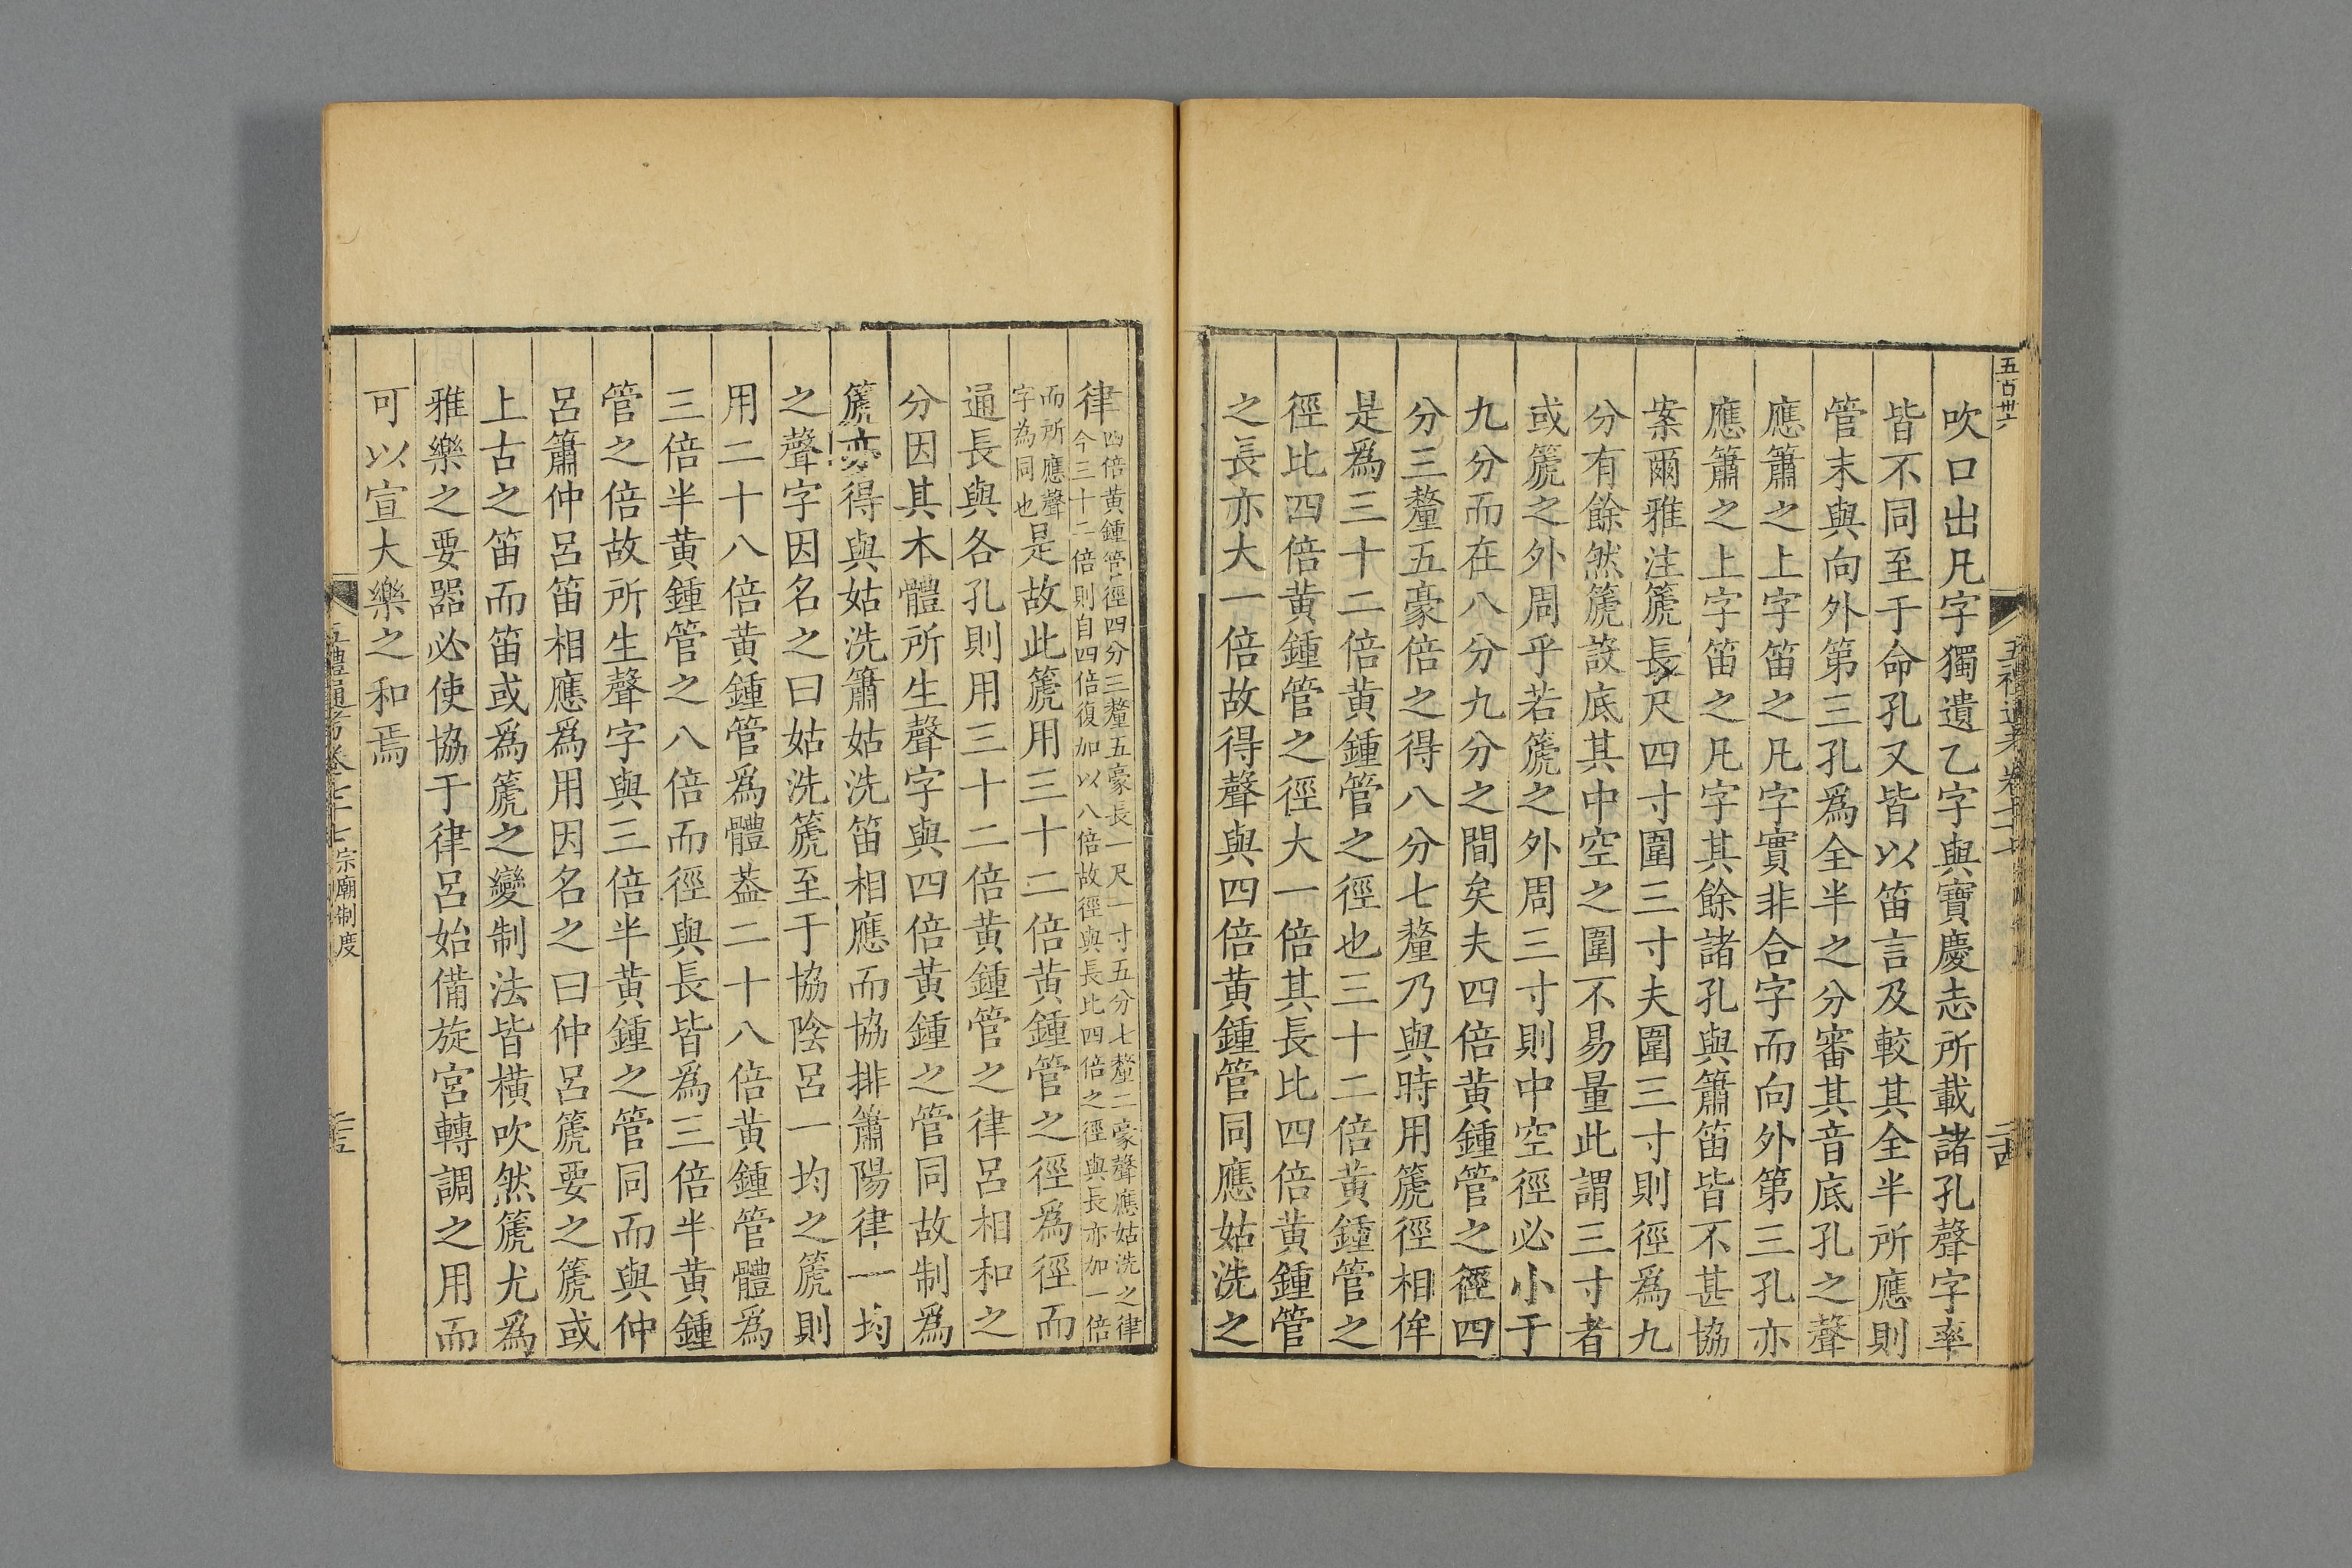 五百卅六
五禮通考卷七十七
二十四
吹口出凡字獨遺乙字與寶慶志所載諸孔聲字率
皆不同至于命孔又皆以笛言及較其全半所應則
管末與向外第三孔爲全半之分審其音底孔之聲
應簫之上字笛之凡字實非合字而向外第三孔亦
應簫之上字笛之凡字其餘諸孔與簫笛皆不甚協
案爾雅注篪長尺四寸圍三寸夫圍三寸則徑爲九
分有餘然篪設底其中空之圍不易量此謂三寸者
或篪之外周乎若篪之外周三寸則中空徑必小于
九分而在八分九分之間矣夫四倍黃鍾管之徑四
分三釐五豪倍之得八分七釐乃與時用篪徑相侔
是爲三十二倍黃鍾管之徑也三十二倍黃鍾管之
徑比四倍黃鍾管之徑大一倍其長比四倍黃鍾管
之長亦大一倍故得聲與四倍黃鍾管同應姑洗之
律四倍黃鍾管徑四分三釐五豪長一尺一寸五分七釐二豪聲應姑洗之律
今三十二倍則自四倍復加以八倍故徑與長比四倍之徑與長亦加一倍
而所應聲
字為同也是故此篪用三十二倍黃鍾管之徑爲徑而
通長與各孔則用三十二倍黃鍾管之律呂相和之
分因其本體所生聲字與四倍黃鍾之管同故制爲
篪亦得與姑洗簫姑洗笛相應而協排簫陽律一均
之聲字因名之曰姑洗篪至于協陰呂一均之篪則
用二十八倍黃鍾管爲體葢二十八倍黃鍾管體爲
三倍半黃鍾管之八倍而徑與長皆爲三倍半黃鍾
管之倍故所生聲字與三倍半黃鍾之管同而與仲
呂簫仲呂笛相應爲用因名之曰仲呂篪要之篪或
上古之笛而笛或爲篪之變制法皆橫吹然篪尤爲
雅樂之要器必使協于律呂始備旋宮轉調之用而
可以宣大樂之和焉
五禮通考卷七十七 宗廟制度
二十五